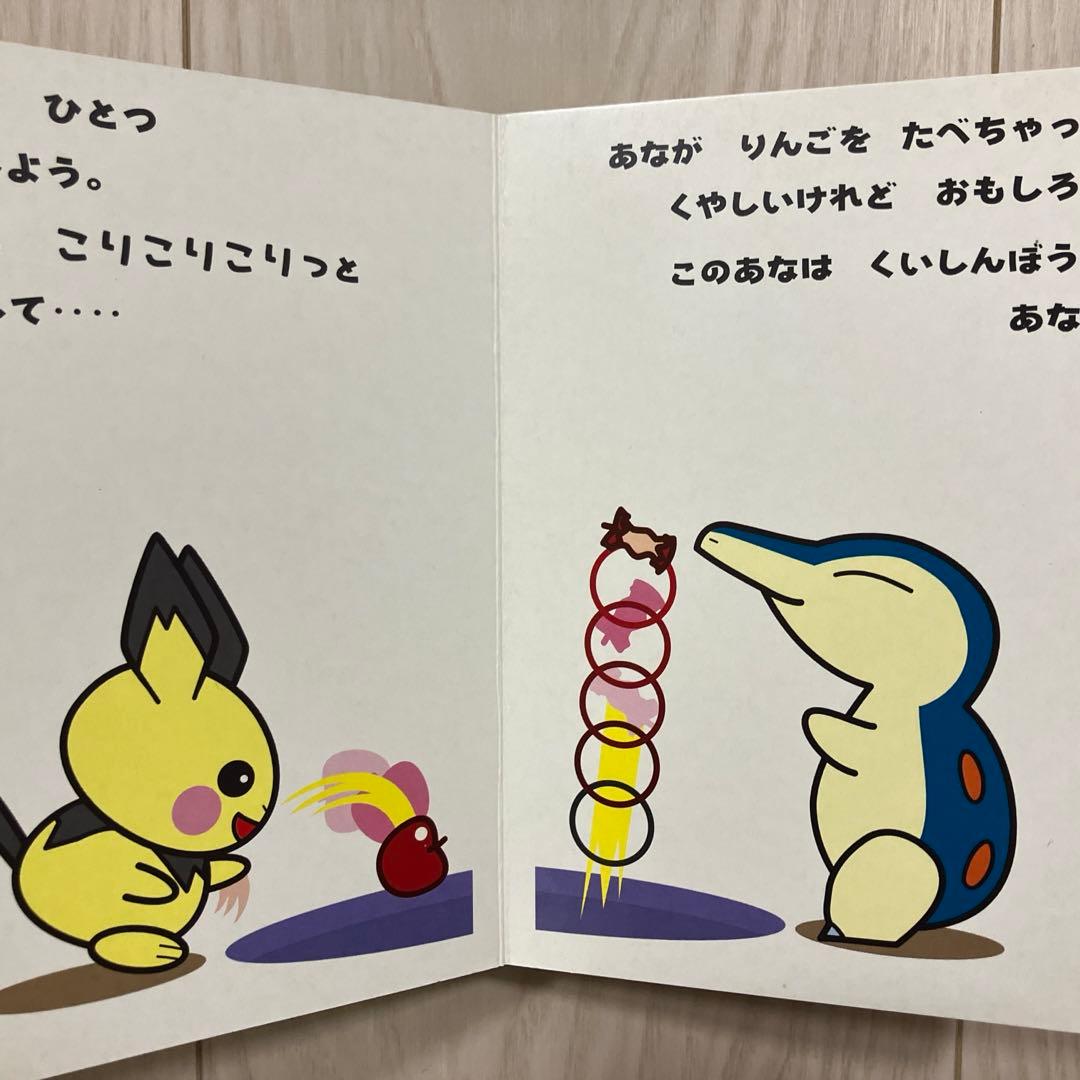 ひとつ
よう。
こりこりこりっと
て‥‥
あなが りんごを たべちゃっ
くやしいけれど おもしろ
このあなは くいしんぼう
あな